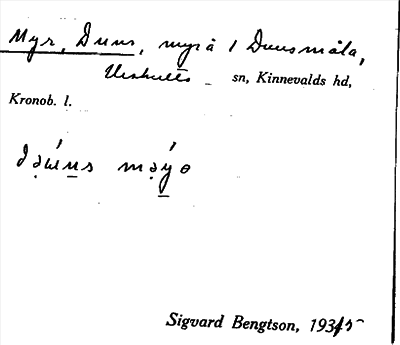 Myr, Duns, myrå i Dunsmåla,
Urshults sn, Kinnevalds hd,
Kronob. l.
Sigvard Bengtson, 1935